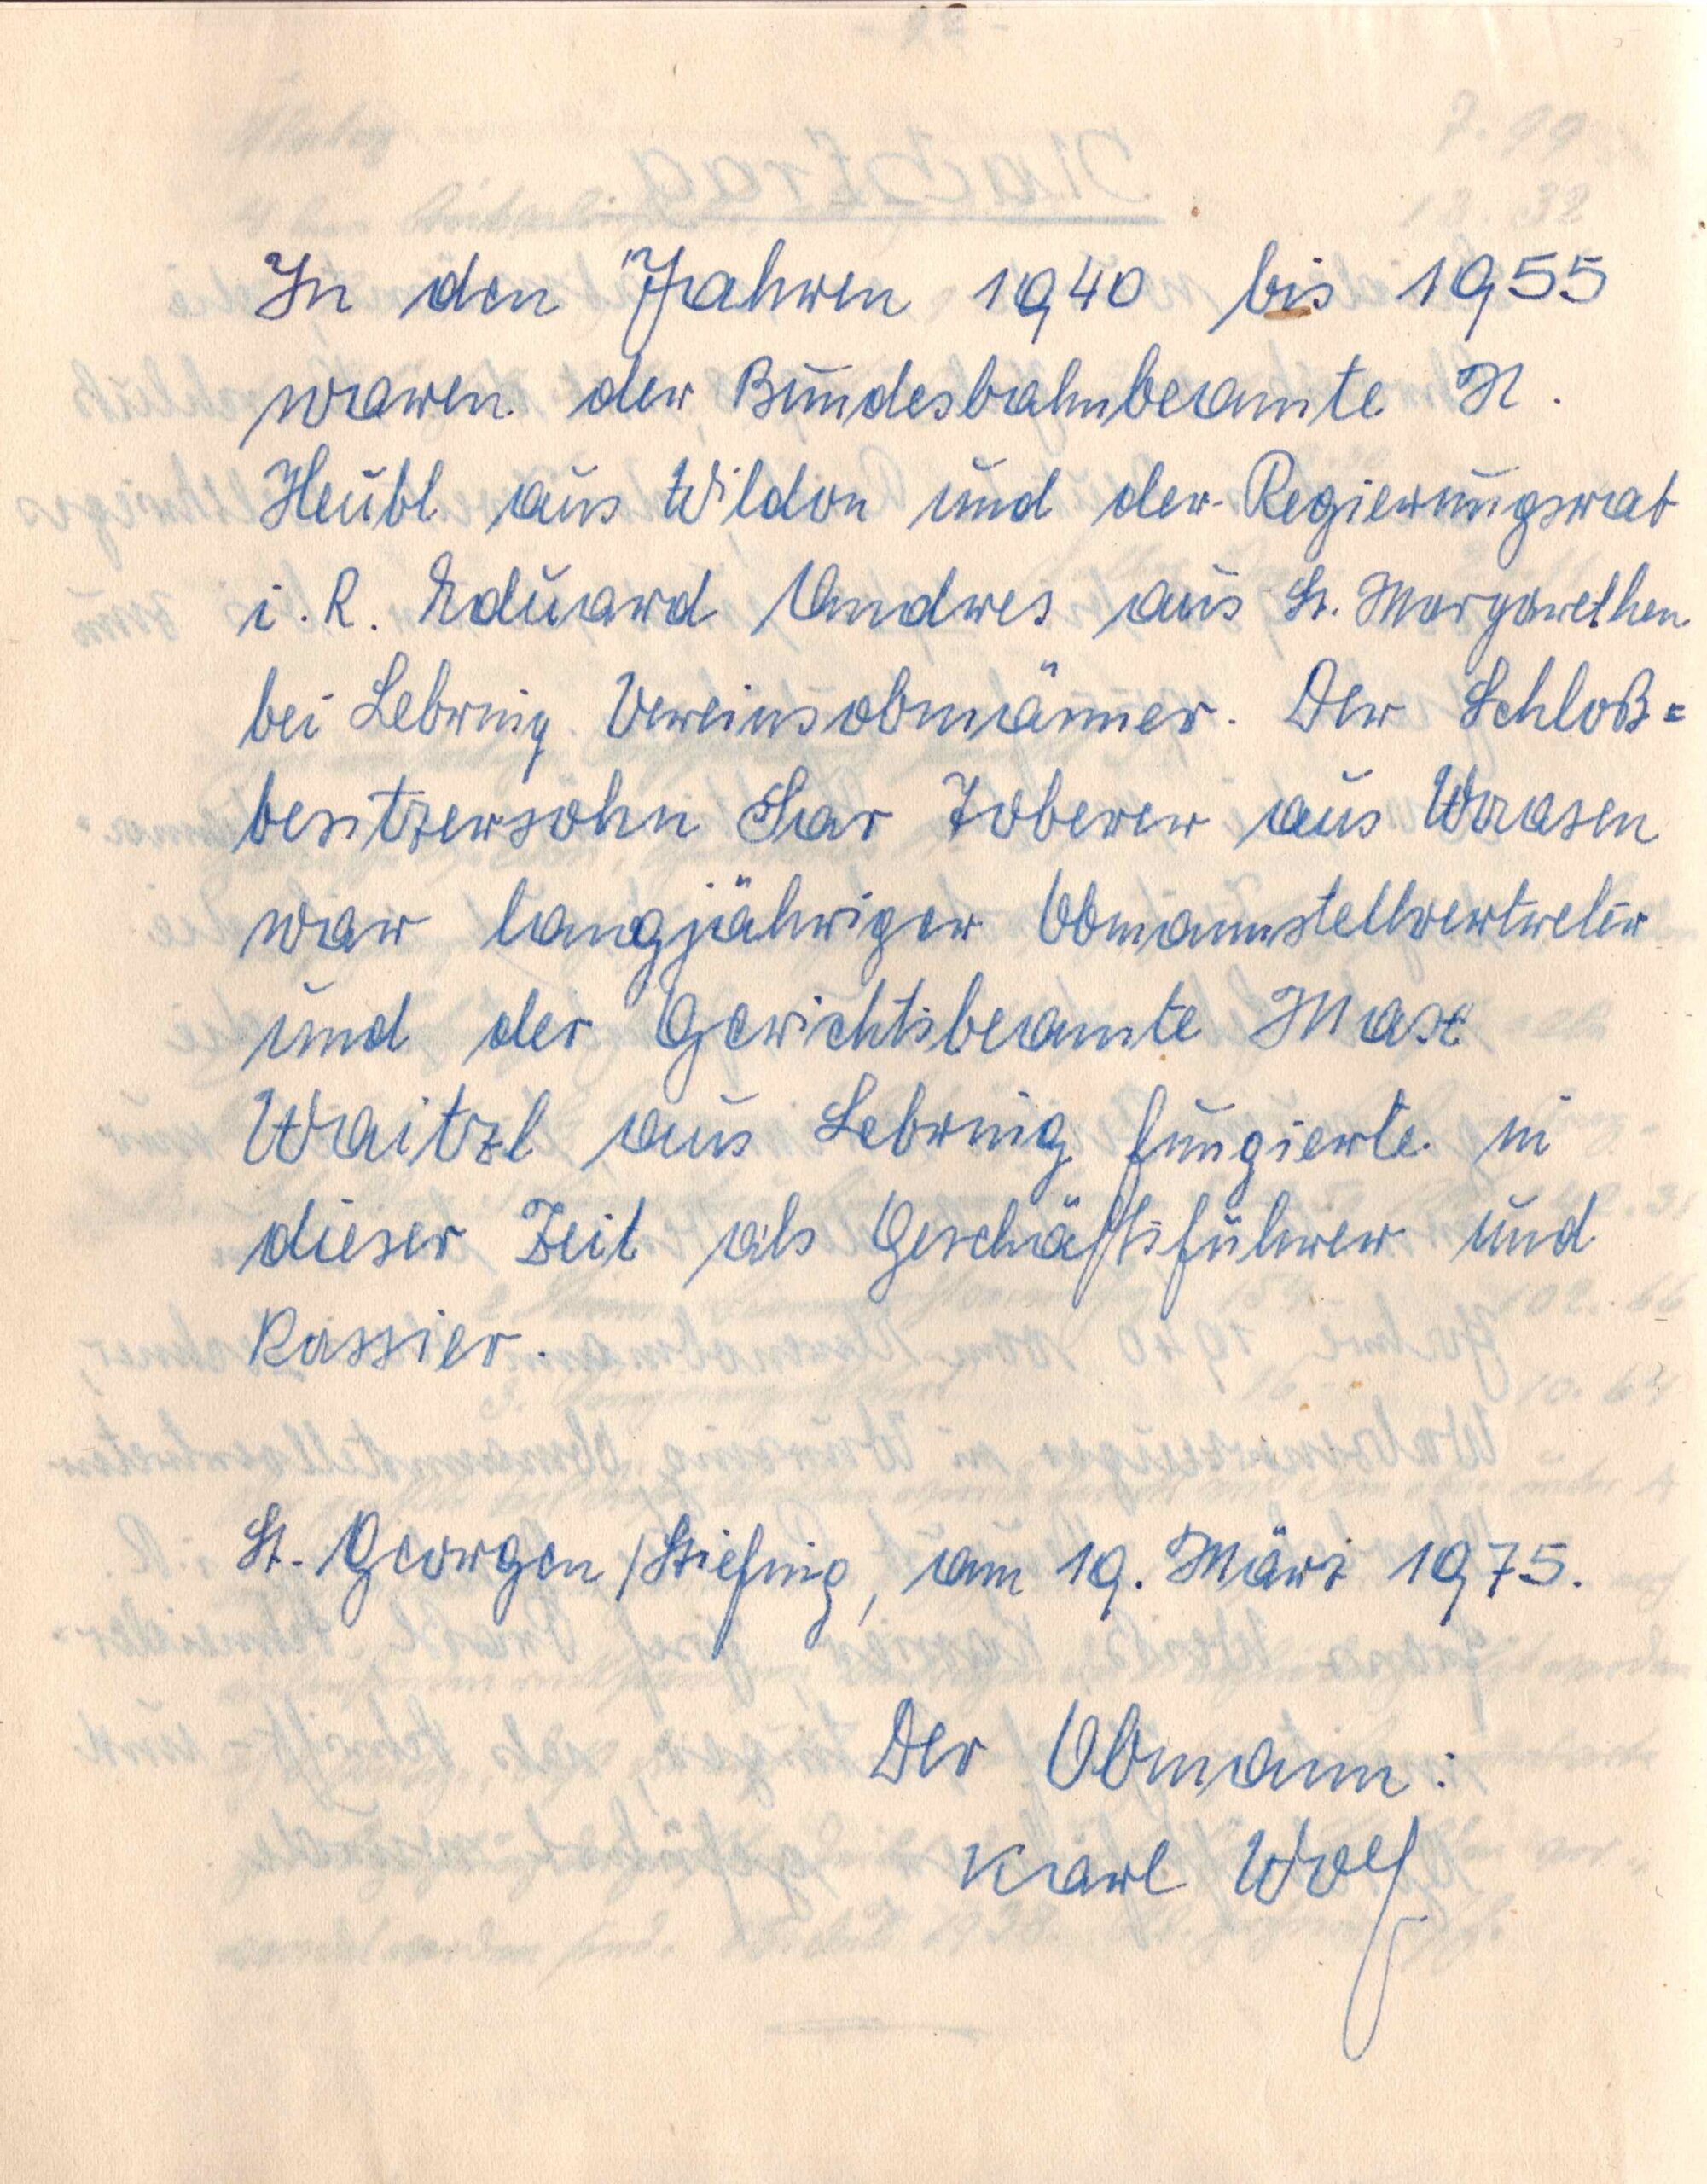 In den Jahren 1940 bis 1955
waren der Bundesbahnbeamte N.
Heubl aus Wildon und der Regierungsrat
i. R. Eduard Andres aus St. Margarethen
bei Lebring Vereinsobmänner. Der Schloß=
besitzersohn Toberer aus Waasen
war langjähriger Obmannstellvertreter
und der Gerichtsbeamte Max
Waitzl aus Lebring fungierte in
dieser Zeit als Geschäftsführer und
Kassier.
St. Georgen/Stiefing, am 19. März 1975.
Der Obmann:
Karl Wolf